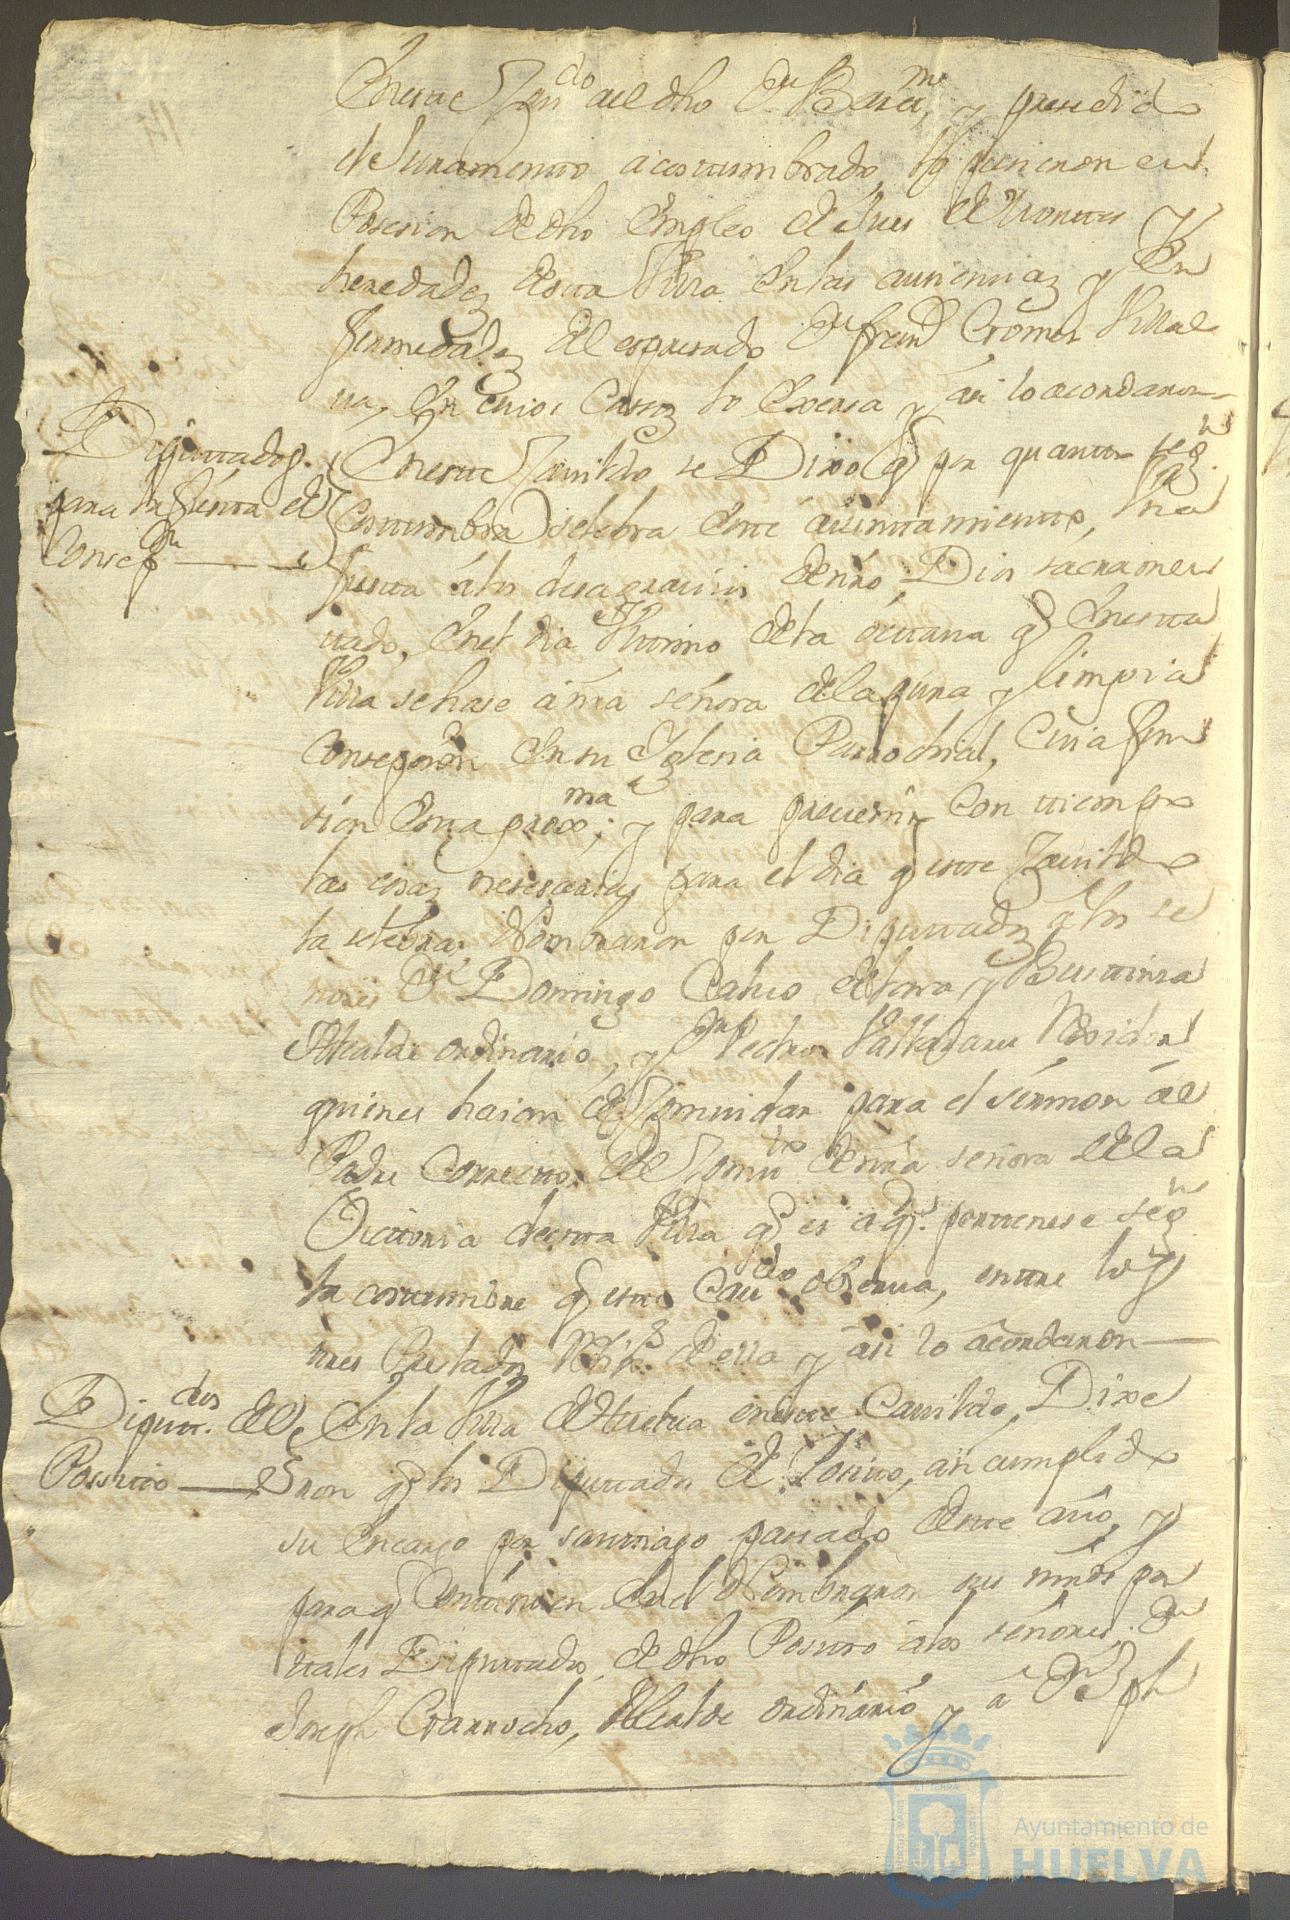 En este Cav.do del dho Dn Barme, y presedido
el Juramento acostumbrado, lo pusieron en
Posesion de dho Empleo de Jues de Montes y
heredades desta Villa en las ausencias y En
fermedades del espresado Dn fran.co Gomes Villal
va, en cuios Casos lo Exersa y asi lo acordaron
Diputados
para la fiesta de
Consepn
En este Cavildo se Dixo q por quanto segn
Costumbre selebra este aiuntamiento, una
fiesta a los desagravios de nro Dios sacramen
tado, en el dia Ultimo de la octava q en esta
Villa se hase a nra señora de la pura y limpia
Consepsion en su Yglesia Parrochial, Cuia fun
sion esta proxma; y para prevenir Con tiempo
las cosas nesesarias para el dia q este Cavildo
la selebra; Nombraron por Diputados a los se
ñores Dn Domingo Calvo de lora y Bustinsa
Alcalde ordinario, y Dn Pedro Valladares Rexidor
quienes haian de Comvidar para el sermon al
Padre Corrector del Comto de nra señora de la
Victoria desta Villa q es a qn pertenese segn
la costumbre q este Cavdo observa, entre los
tres Prelados de ella y asi lo acordaron
Diputdos del
Possito
En la Villa de Huelva en este Cavildo, Dixe
ron q los Diputados del Posito, an cumplido
su Encargo por santiago pasado deste año, y
para q Continuen en el Nombraron sus mrds por
tales Diputados, de dho Possito a los señores Dn
Joseph Garrocho, Alcalde ordinario y a Dn Jph
Ayuntamiento de
HUELVA